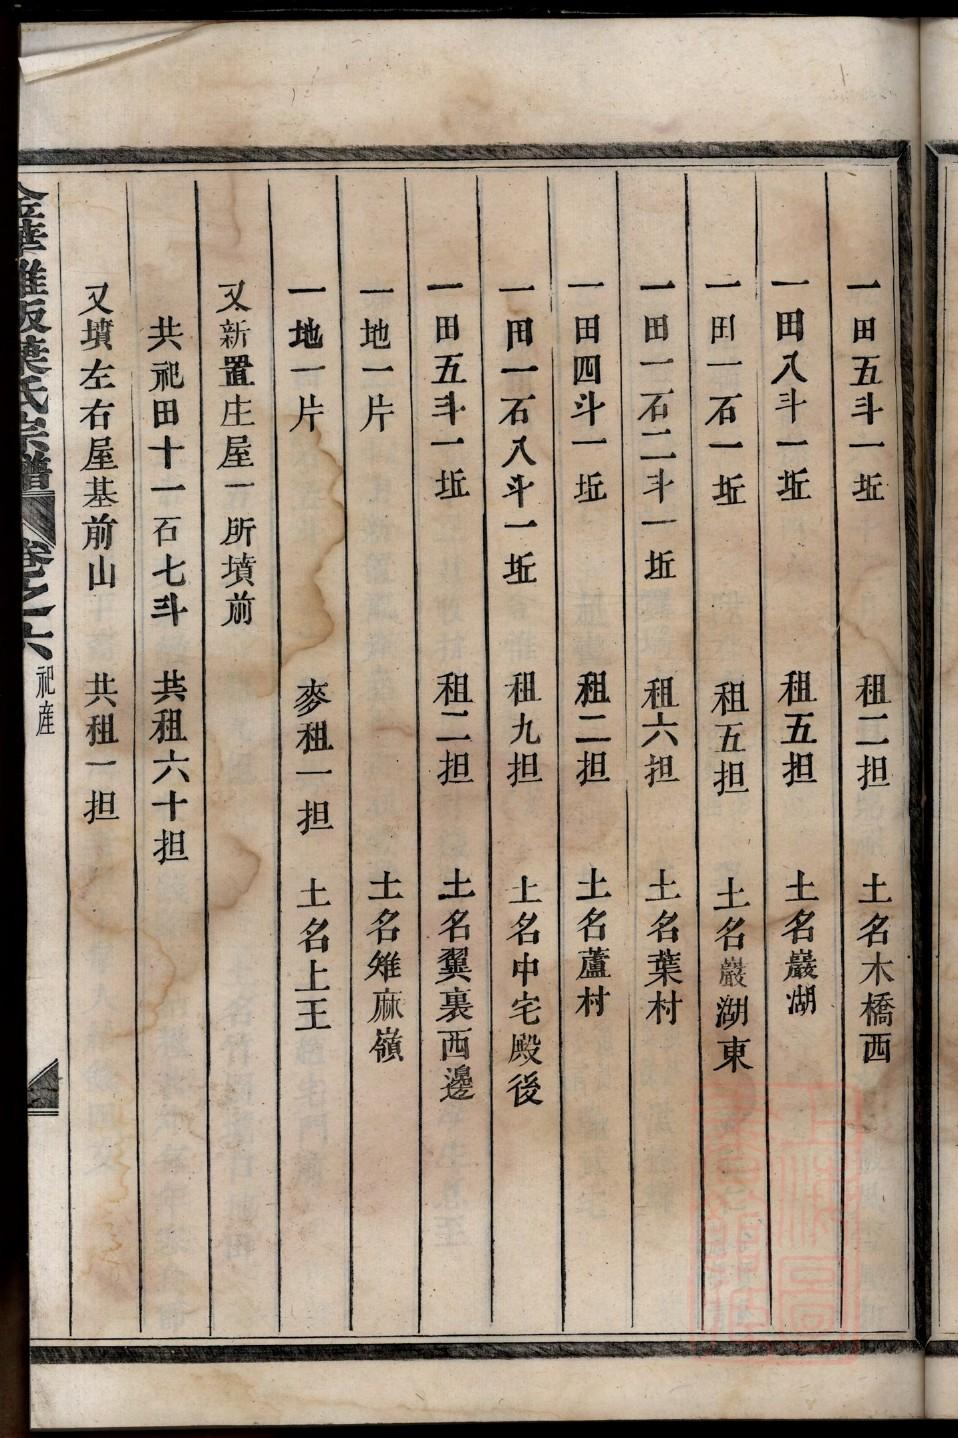 一田五斗一坵 租二担 土名木橋西
一田八斗一坵 租五担 土名巖湖
一田一石一坵 租五担 土名巖湖東
一田一石二斗一坵 租六担 土名葉村
一田四斗一坵 租二担 土名蘆村
一田一石八斗一坵 租九担 土名中宅殿後
一田五斗一坵 租二担 土名翼裏西邊
一地一片 土名雉麻嶺
一地一片 麥租一担 土名上王
又新置庄屋一所墳前
共祀田十一石七斗 共租六十担
又墳左右屋基前山 共租一担
金華雅坂葉氏宗譜 卷之六 祀産